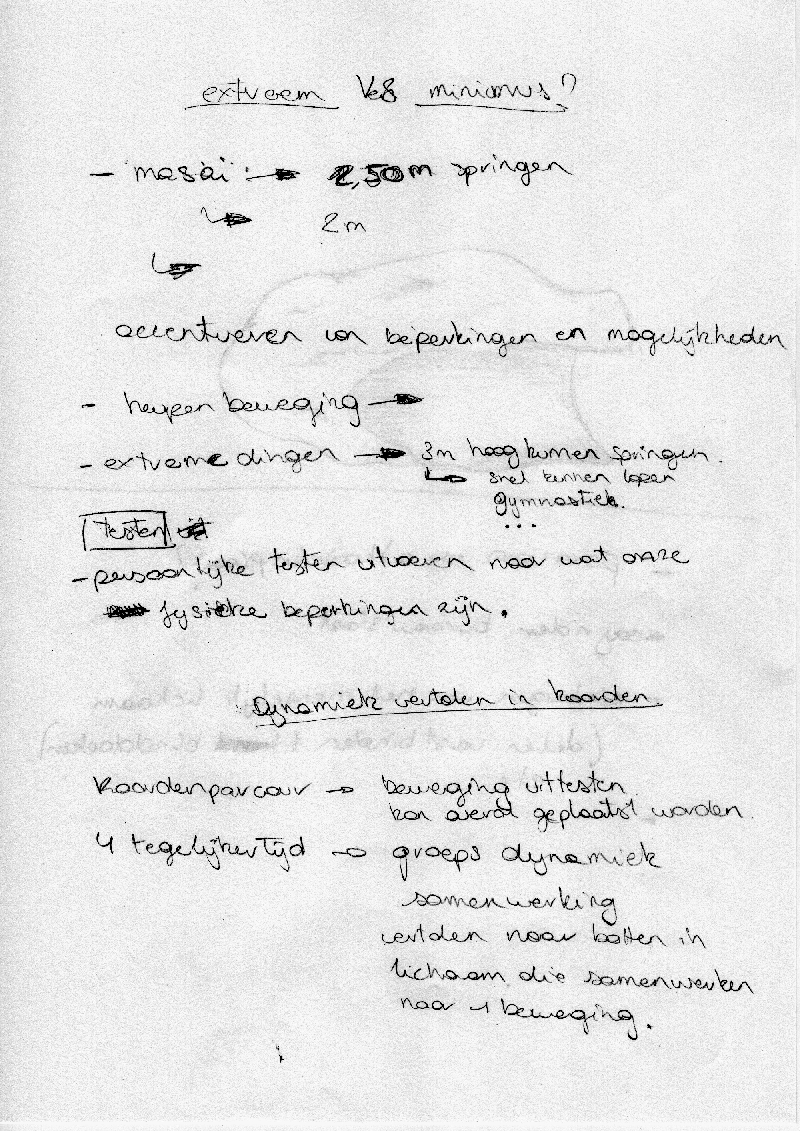 extreem VeS minimus?
- masai: → 2,50m springen
↳ 2m
↳
accentueren van beperkingen en mogelijkheden
- heupen beweging →
- extreme dingen → 3m hoog kunnen springen.
↳ snel kunnen lopen
gymnastiek.
...
testen
- persoonlijke testen uitvoeren naar wat onze
fysieke beperkingen zijn.
Dynamiek vertalen in koorden.
Koordenparcour → beweging uittesten
kan overal geplaatst worden.
4 tegelijkertijd → groeps dynamiek
samenwerking
vertalen naar botten in
lichaam die samenwerken
naar 1 beweging.